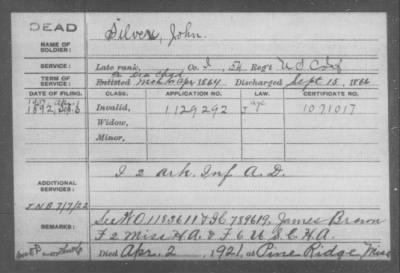 DEAD
NAME OF SOLDIER:
Silver, John.
SERVICE:
Late rank, Co. I, 54 Reg't U S Col Inf
TERM OF SERVICE:
Enlisted Apr 1864, Discharged Sept 15, 1866
DATE OF FILING. CLASS. APPLICATION NO. LAW. CERTIFICATE NO.
1892, Invalid, 1129292 1071017
Widow,
Minor,
ADDITIONAL SERVICES:
I 2 ark. Inf. A. D.
REMARKS:
See 1183611 789619, James Brown
F 2 Miss H.A. & F 6 U.S.C.H.A.
Died Apr. 2, 1921, at Pine Ridge, Miss